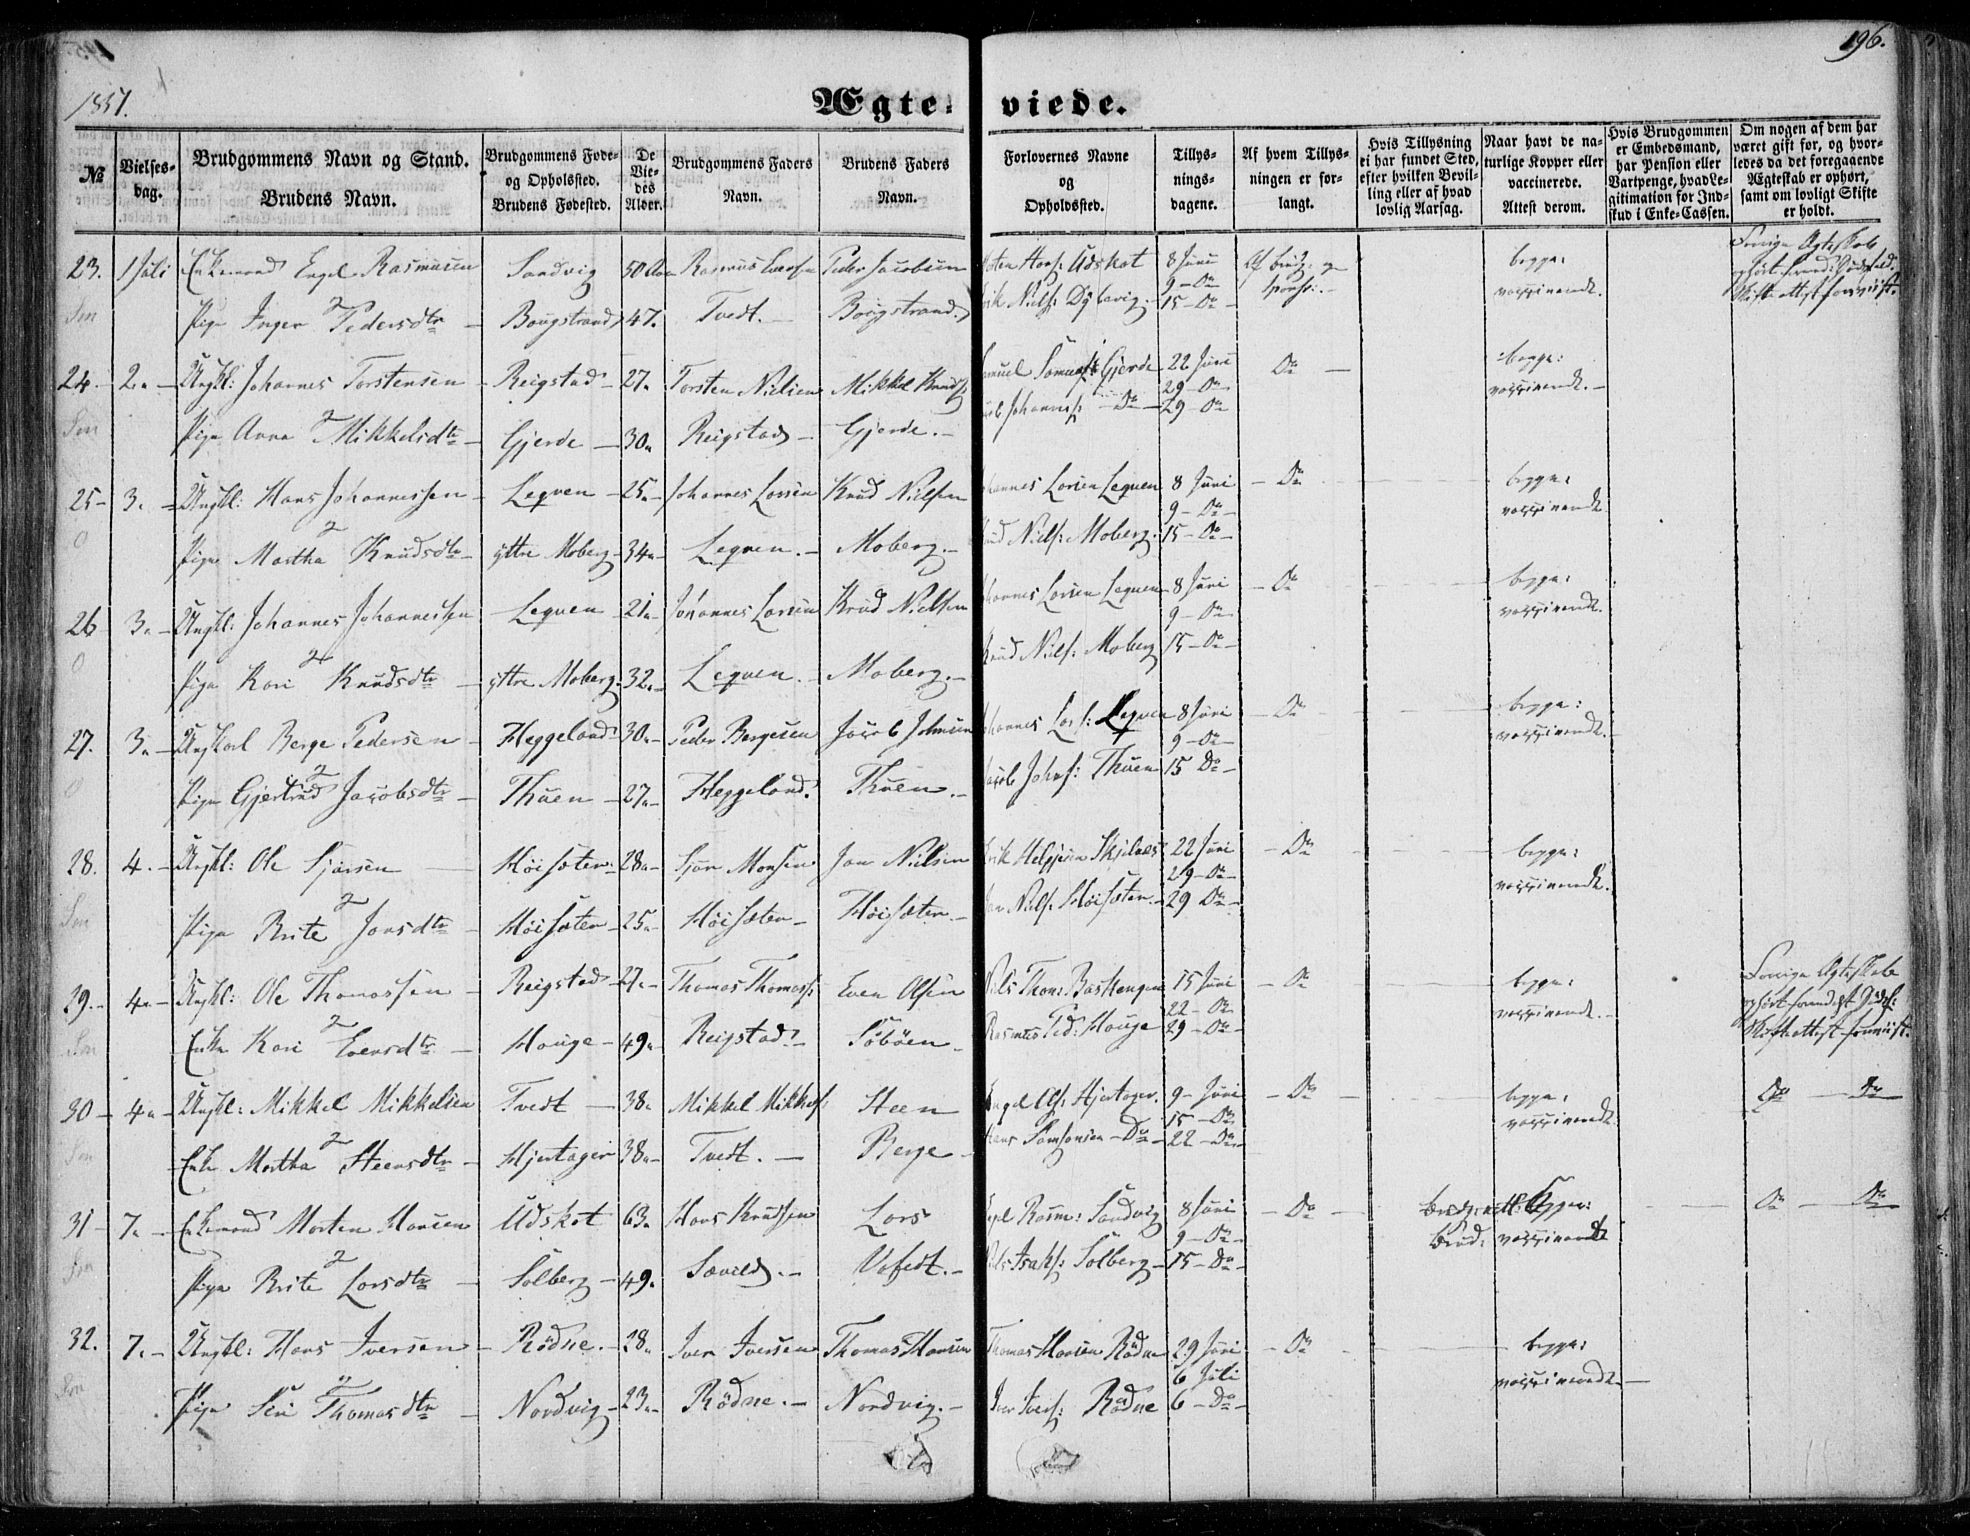 196.
1857.
Ægte- viede.
№
Vielses-
dag.
Brudgommens Navn og Stand.
Brudens Navn.
Brudgommens Føde-
og Opholssted.
Brudens Fødested.
De
Vie-
des
Alder.
Brudgommens Faders
Navn.
Brudens Faders
Navn.
Forlovernes Navne
og
Opholdssted.
Tillys-
nings-
dagene.
Af hvem Tillys-
ningen er for-
langt.
Hvis Tillysning
ei har fundet Sted,
efter hvilken Bevil-
ling eller af hvad
lovlig Aarsag.
Naar havt de na-
turlige Kopper eller
vaccinerede.
Attest derom.
Hvis Brudgommen
er Embedsmand,
har Pension eller
Vartpenge, hvad Le-
gitimation for Ind-
skud i Enke-Cassen.
Om nogen af dem har
været gift før, og hvor-
ledes da det foregaaende
Ægteskab er ophørt,
samt om lovligt Skifte
er holdt.
23. 1 Juli Enkemand Engel Rasmusen Sandvig 50 Rasmus Peder Jacobsen Udskot 8 Juni begge:
9 - Do
Pige Inger Pedersdtr Bougstrand 47. Tvedt. Bougstrand. Niels: 15 - Do vaccinerede.
24. 2. Ungkl: Johannes Torstensen Reigstad 27 Torsten Nielsen Mikkel Gjerde 22 Juni Do begge:
29 - Do vaccinerede.
Pige Anna Mikkelsdtr Gjerde 30 Reigstad Gjerde. Johanness: Do 29 - Do
25 3. Ungkl: Hans Johannessen Leqven 25 Johannes Larsen Knud Nielsen Larsen Leqven 8 Juni Do begge:
9 - Do vaccinerede
Pige Martha Knudsdtr yttre Moberg 34 Leqven. Moberg. Niels: Moberg. 15 - Do
26 3. Ungkl: Johannes Johannessen Leqven 21 Johannes Larsen Knud Nielsen Larsen Leqven 8 Juni Do begge:
9 - Do vaccinerede.
Pige Kari Knudsdtr yttre Moberg 32. Leqven. Moberg. Knud Niels: Moberg 15 - Do
27. 3. Ungkarl Berge Pedersen Heggeland 30 Peder Bergesen Jacob Johnsen Lars: Leqven 8 Juni Do begge:
9 - Do vaccinerede.
Pige Gjertrud Jacobsdtr Thuen 27 Heggeland. Thuen. Jacob Johns: Thuen 15 Do
28. 4. Ungkl: Ole Sjursen Høisæter 28 Sjur Monsen Jon Nielsen Skjelnes 22 Juni Do begge:
29 - Do vaccinerede.
Pige Brite Jonsdtr Høisæter 25 Høisæter Høisæter. Niels: Høisæter 29 Do
29. 4. Ungkl: Ole Thomassen Reigstad 27 Thomas Thomass: Even Olsen Niels Thom: 15 Juni Do begge: Ægteskab
22 - Do vaccinerede.
Enke Kari Evensdtr Houge 49 Reigstad Søbøen Rasmus Ped: Houge 29 - Do
30 4. Ungkl: Mikkel Mikkelsen Tvedt 38 Mikkel Mikkels: Steen Hjertager. 9 Juni Do begge: Do Do
15 - Do vaccinerede.
Enke Martha Steensdtr Hjertager 38 Tvedt. Berge Hans Samsonsen Do 22 - Do
31 7. Enkemand Morten Hansen Udskot 63 Hans Knudsen Lars Rasm: Sandvig 8 Juni Do Do Do
9 - Do vaccinerede
Pige Brite Larsdtr Solberg 49. Isaks: Solberg 15 - Do
32. 7. Ungkl: Hans Iversen Rødne. 28 Iver Iversen Thomas Hansen Thomas Hansen Rødne 29 Juni Do begge:
6 Juli vaccinerede.
Pige Siri Thomasdtr Nordvig 23 Rødne. Nordvig. Iver Ivers: Rødne 6 - Do